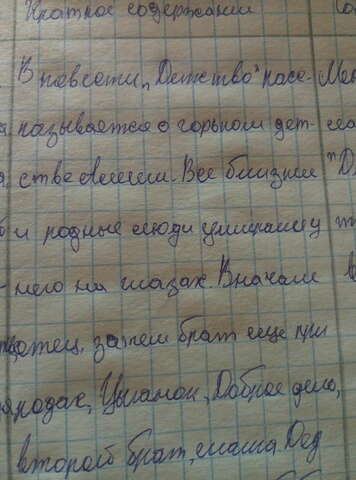 Краткое содержании
В повести „Детство" расс-
называется о горьком дет-
стве Алеши. Все близкии
и родные люди умирают у
него на глазах. Вначале
отец, затем брат еще при
родах, Цыганок, Доброе дело,
второй брат, мама. Дед